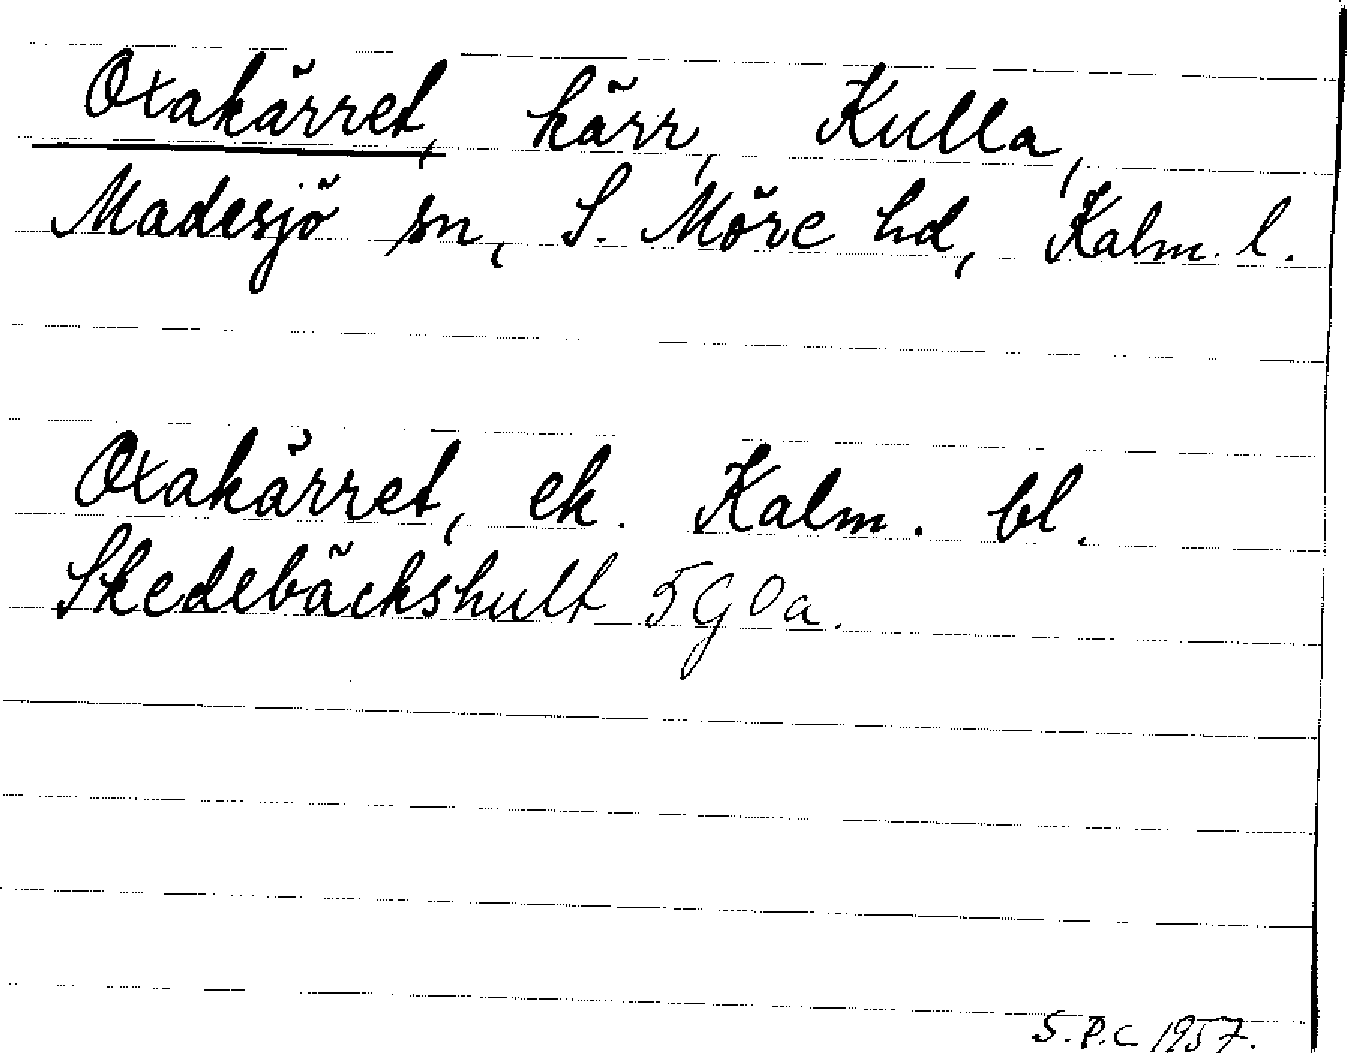 Oxakärret, kärr, Kulla,
Madesjö sn, S. Möre hd, Kalm. l.
Oxakärret, ek. Kalm. bl.
Skedebäckshult 5G0a.
S.P.C 1957.